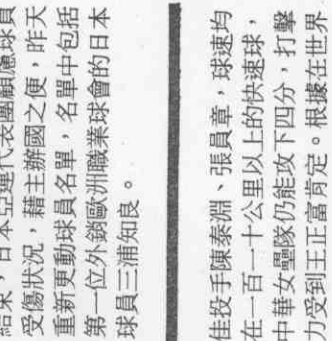 結果，日本亞運代表團顧慮球員
受傷狀況，藉主辦國之便，昨天
重新更動球員名單，名單中包括
第一位外銷歐洲職業球會的日本
球員三浦知良。
佳投手陳泰淵、張員章，球速均
在一百一十公里以上的快速球，
中華女壘隊仍能攻下四分，打擊
力受到王正富肯定。根據在世界